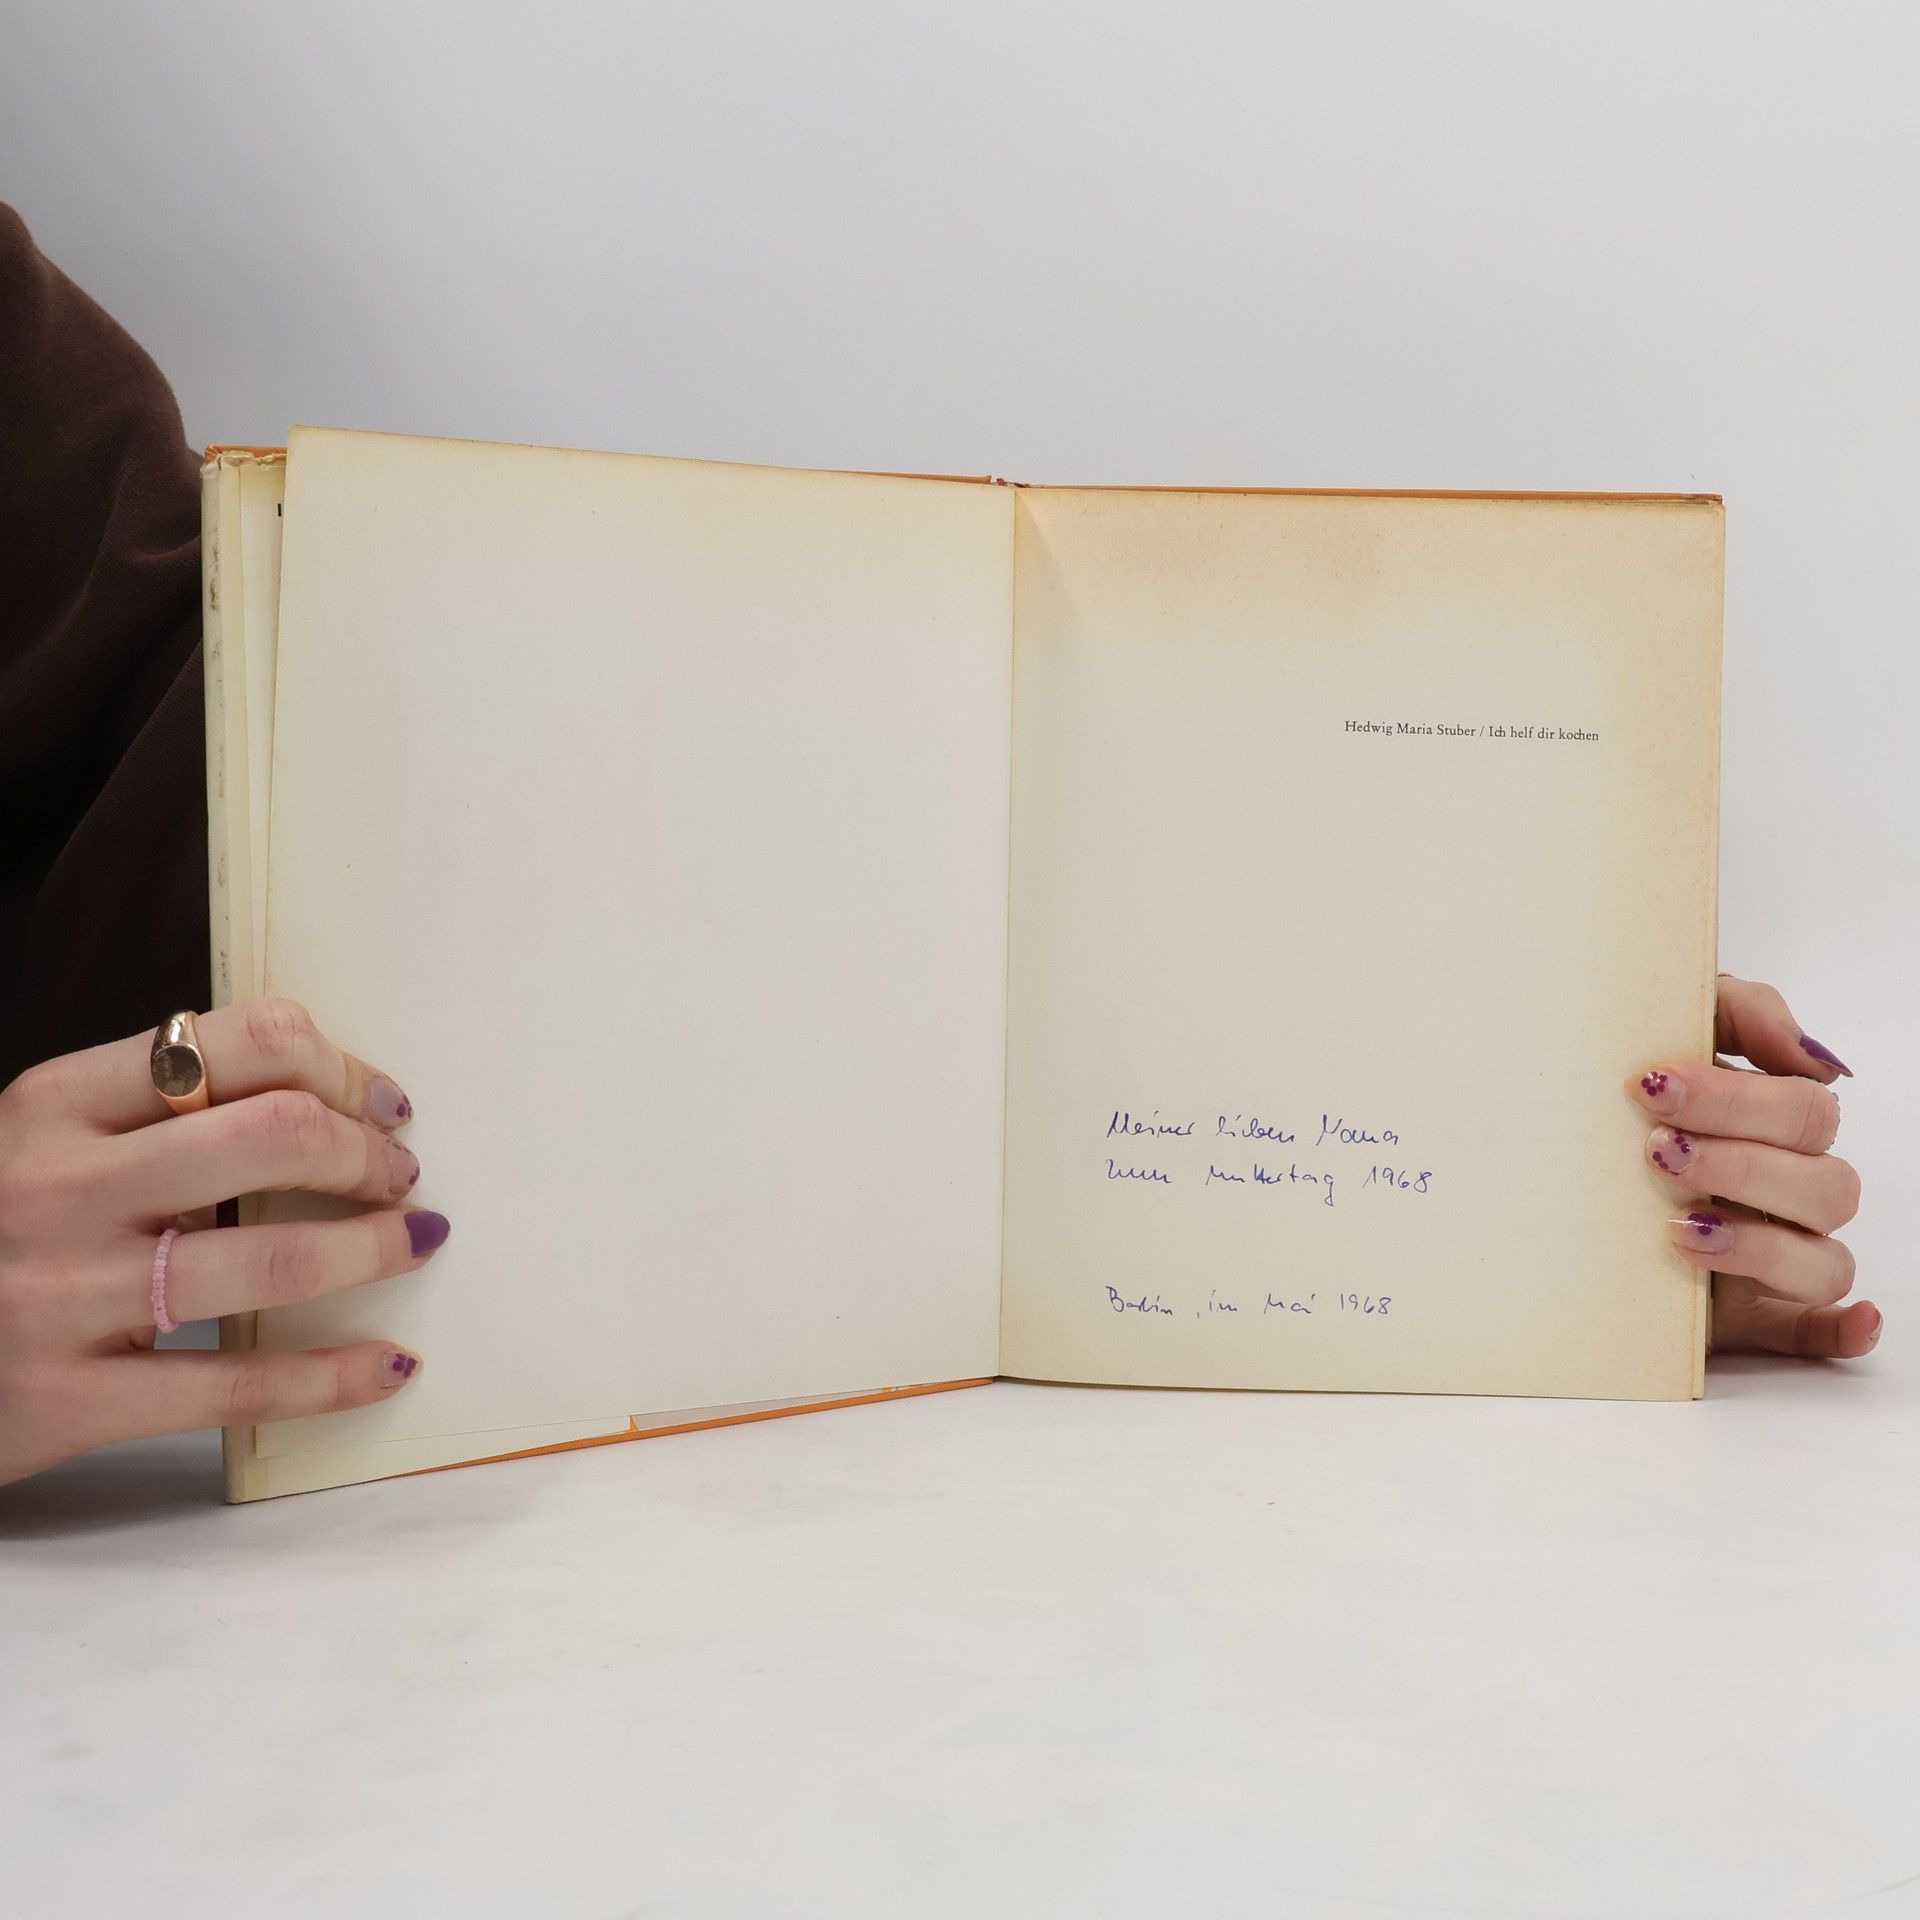 Hedwig Maria Stuber / Ich helf dir kochen
Meiner lieben Mama
zum Muttertag 1968
Berlin, im Mai 1968